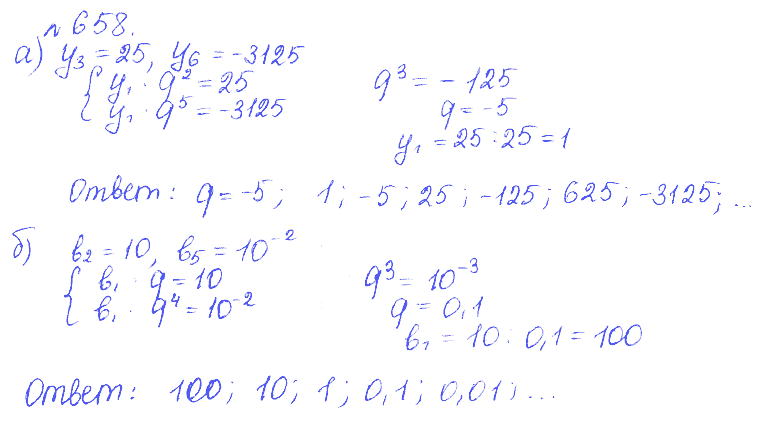 № 658.
а) y₃ = 25, y₆ = -3125
{ y₁ · q² = 25
{ y₁ · q⁵ = -3125
q³ = -125
q = -5
y₁ = 25 : 25 = 1
Ответ: q = -5; 1; -5; 25; -125; 625; -3125; ...
б) в₂ = 10, в₅ = 10⁻²
{ в₁ · q = 10
{ в₁ · q⁴ = 10⁻²
q³ = 10⁻³
q = 0,1
в₁ = 10 : 0,1 = 100
Ответ: 100; 10; 1; 0,1; 0,01; ...